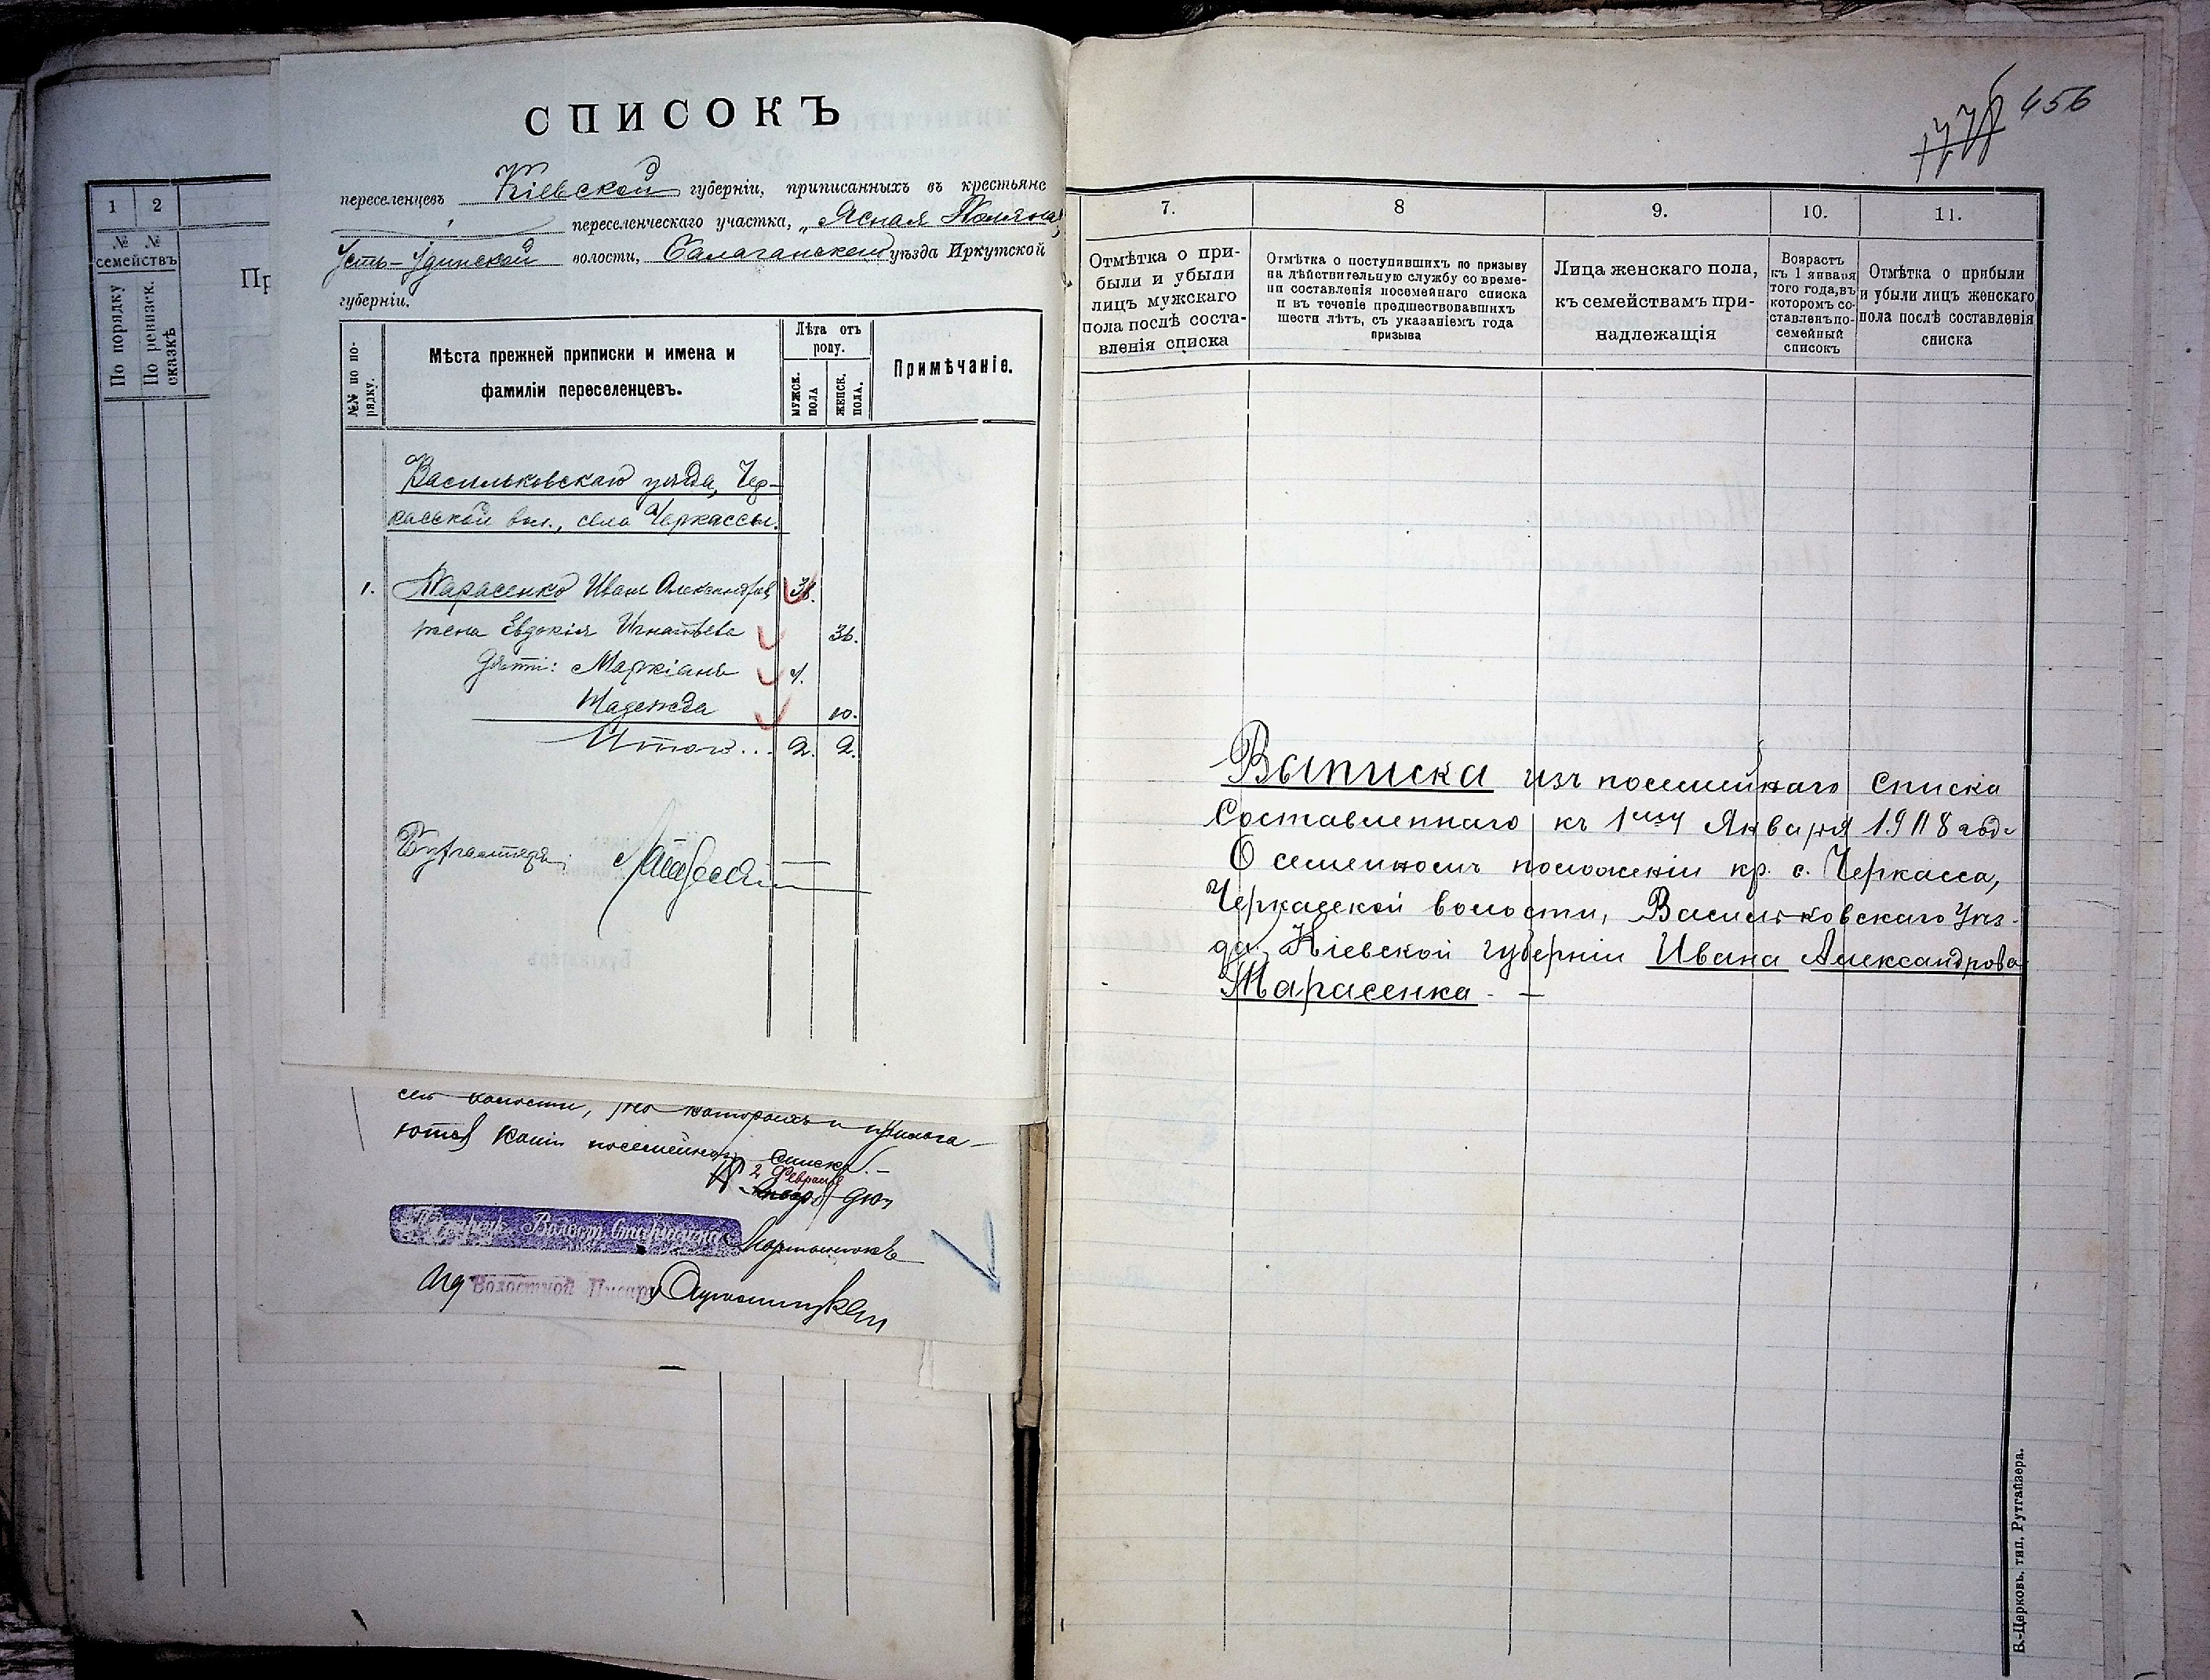 1
2
№ №
семействъ
По порядку
По ревизск.
сказкѣ
Пр
СПИСОКЪ
переселенцевъ Кіевской губерніи, приписанныхъ въ крестьяне
переселенческаго участка, „Ясная Поляна“,
Усть-Удинской волости, Балаганскаго уѣзда Иркутской
губерніи.
№№ по по-
рядку.
Мѣста прежней приписки и имена и
фамиліи переселенцевъ.
Лѣта отъ
роду.
МУЖСК.
ПОЛА
ЖЕНСК.
ПОЛА.
Примѣчаніе.
Васильковскаго уѣзда, Чер-
касской вол., села Черкассы.
1. Тарасенко Иванъ Александровъ 38.
жена Евдокія Игнатьева 36.
дѣти: Маркіанъ
Надежда 10.
Итого... 2. 2.
Бухгалтеръ
сей волости, на которыхъ и прилага-
ются копіи посемейнаго списка. —
2 Февраля
дня
Волост. Старшина Мартынюкъ
Ид Волостной Писарь
456
7.
8
9.
10.
11.
Отмѣтка о при-
были и убыли
лицъ мужскаго
пола послѣ соста-
вленія списка
Отмѣтка о поступившихъ по призыву
на дѣйствительную службу со време-
ни составленія посемейнаго списка
и въ теченіе предшествовавшихъ
шести лѣтъ, съ указаніемъ года
призыва
Лица женскаго пола,
къ семействамъ при-
надлежащія
Возрастъ
къ 1 января
того года, въ
которомъ со-
ставленъ по-
семейный
списокъ
Отмѣтка о прибыли
и убыли лицъ женскаго
пола послѣ составленія
списка
Выписка изъ посемейнаго списка
Составленнаго къ 1му Января 1908 года
О семейномъ положеніи кр. с. Черкасса,
Черкасской волости, Васильковскаго Уѣз-
да, Кіевской губерніи Ивана Александрова
Тарасенка. —
Б.-Церковь, тип. Рутгайзера.